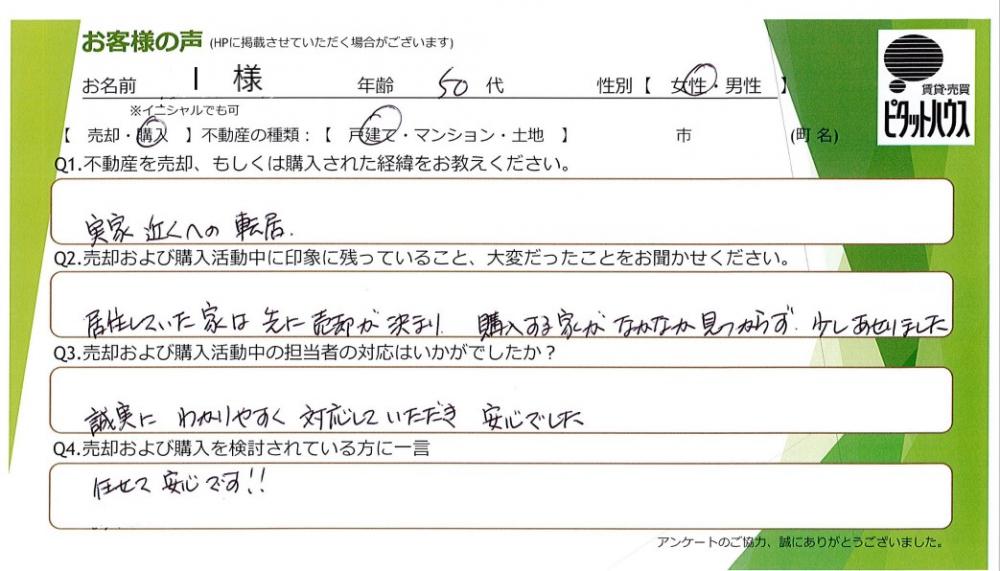 お客様の声 (HPに掲載させていただく場合がございます)
お名前 I 様 年齢 50 代 性別【 女性・男性 】
※イニシャルでも可
賃貸・売買
ピタットハウス
【 売却・購入 】不動産の種類：【 戸建て・マンション・土地 】 市 (町名)
Q1.不動産を売却、もしくは購入された経緯をお教えください。
実家 近くへの 転居.
Q2.売却および購入活動中に印象に残っていること、大変だったことをお聞かせください。
居住していた 家は 先に 売却が 決まり 購入する 家が なかなか 見つからず. 少しあせりました
Q3.売却および購入活動中の担当者の対応はいかがでしたか？
誠実に わかりやすく 対応して いただき 安心でした
Q4.売却および購入を検討されている方に一言
任せて 安心です!!
アンケートのご協力、誠にありがとうございました。